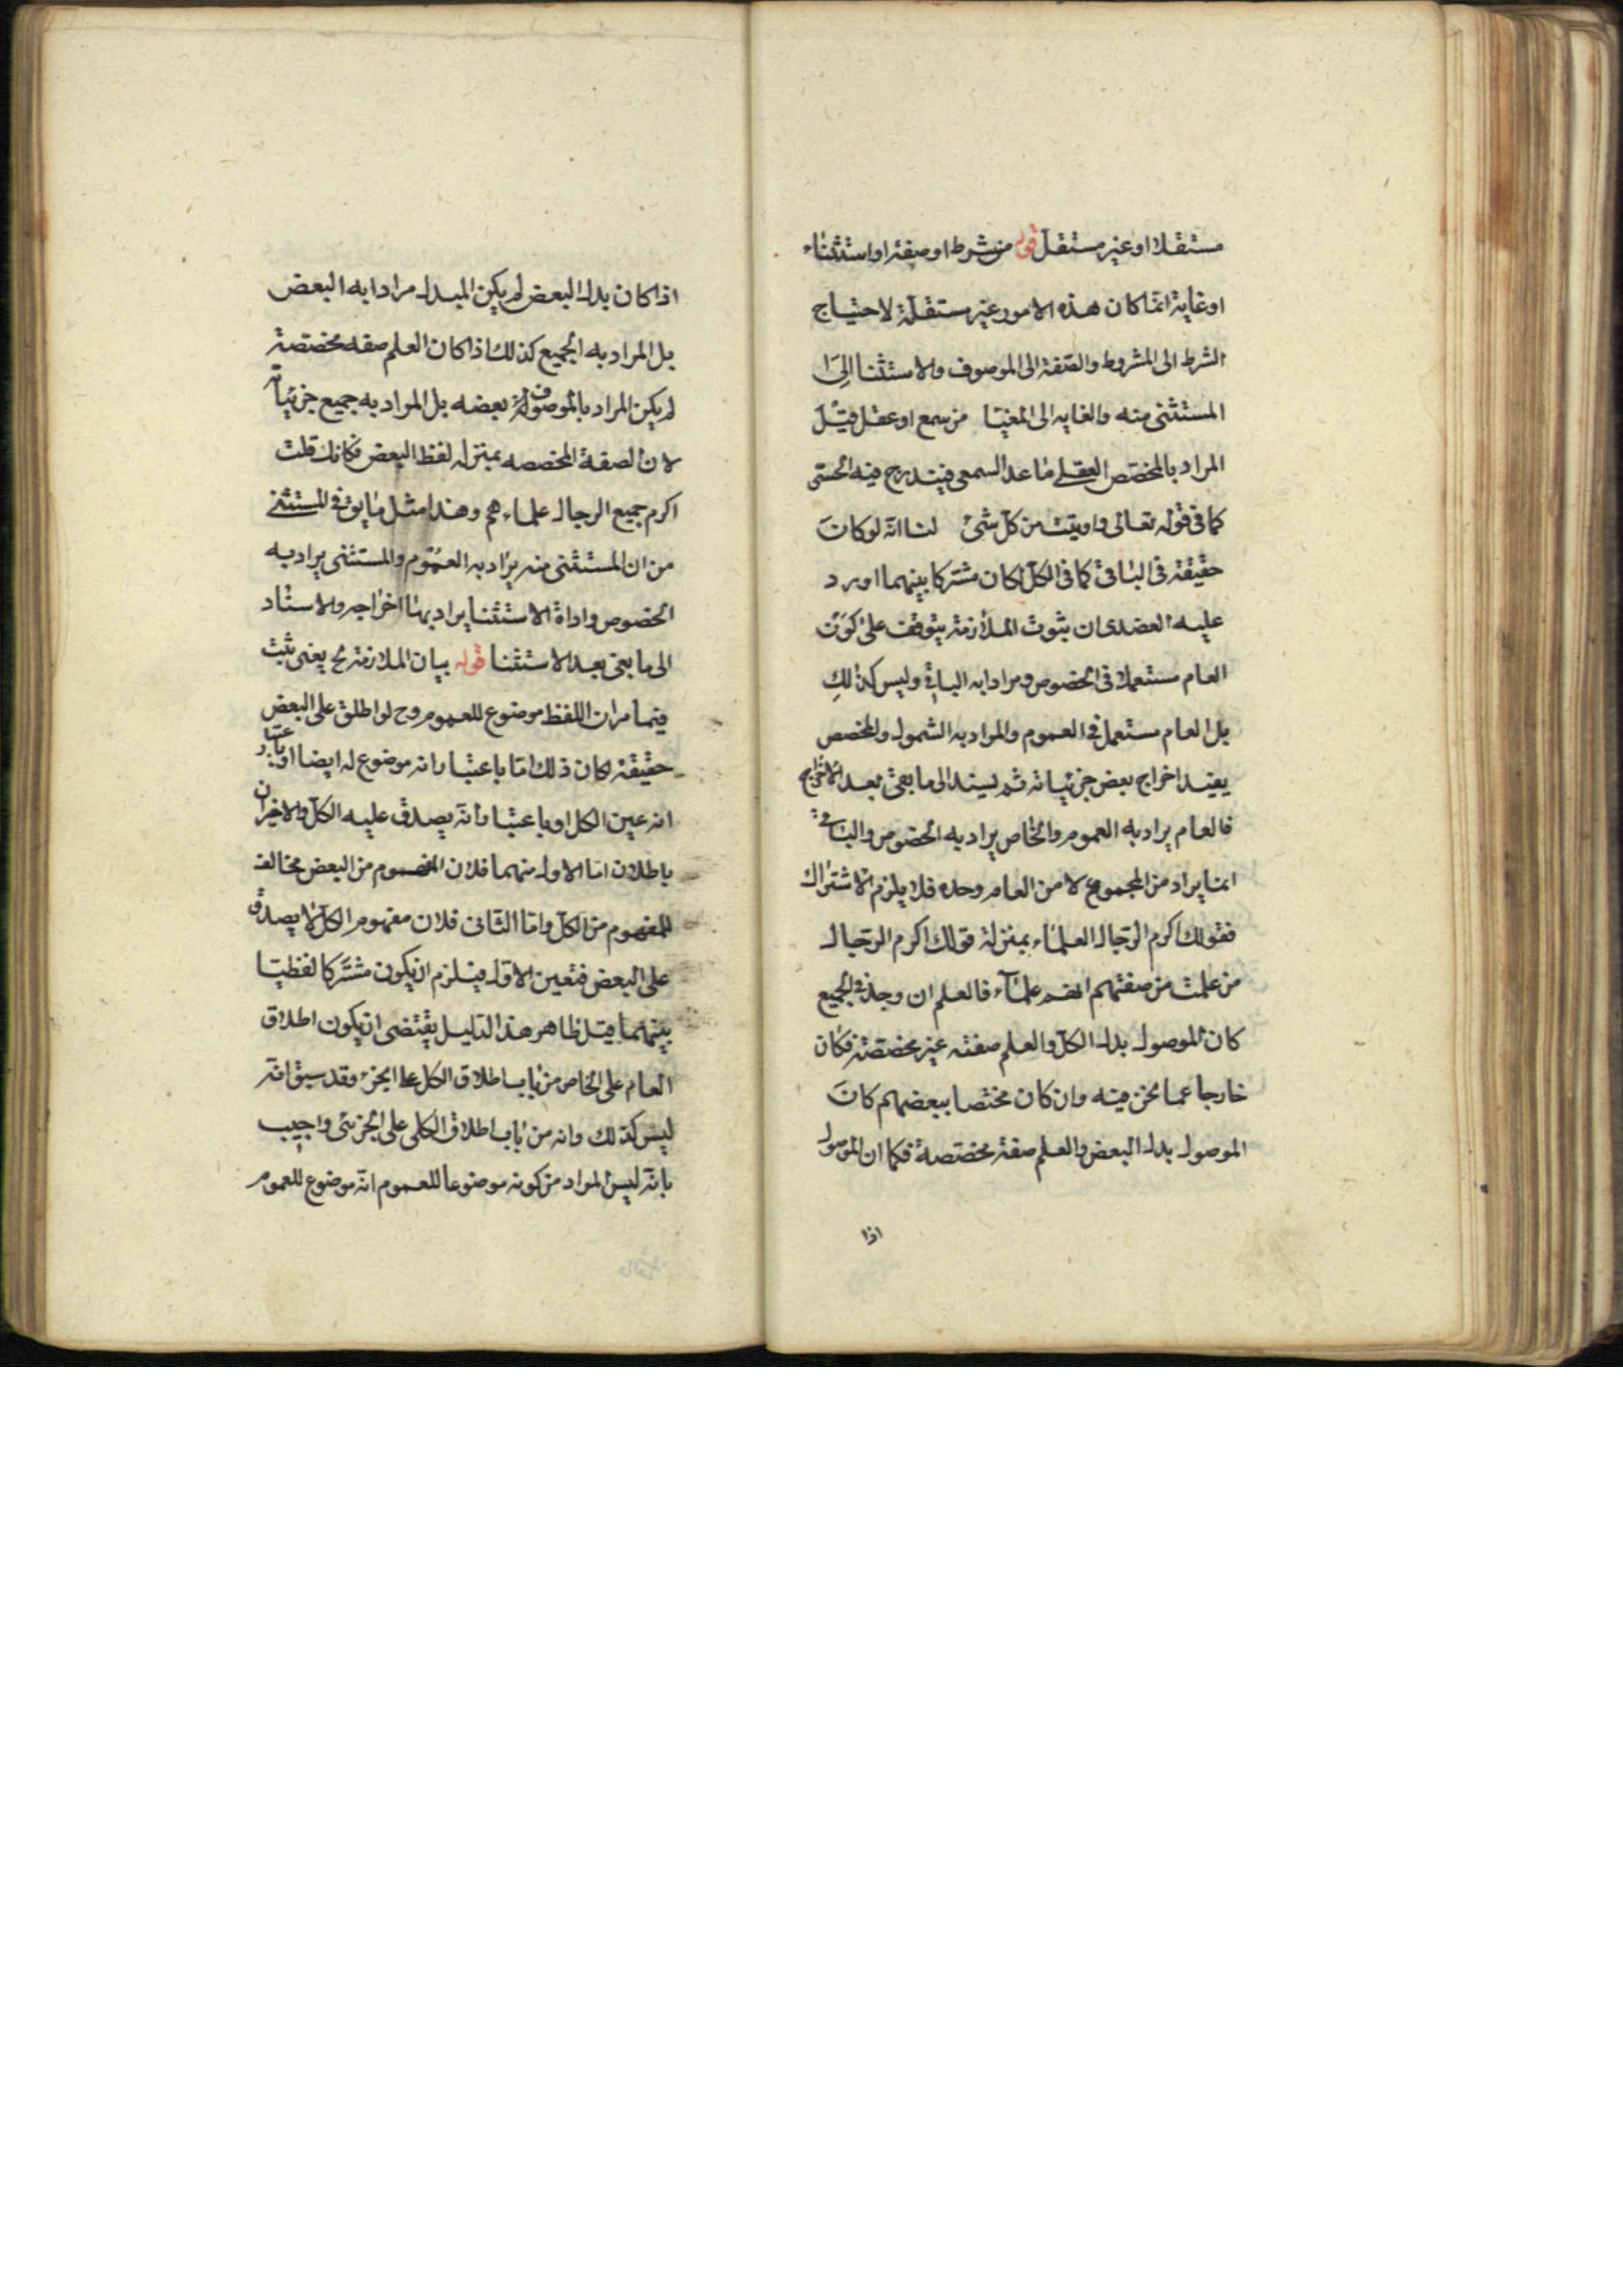 مستقلا او غير مستقل قوله من شرط او صفة او استثناء
او غاية انما كان هذه الامور غير مستقلة لاحتياج
الشرط الى المشروط والصفة الى الموصوف والاستثنا الى
المستثنى منه والغايه الى المغيّا من سمع او عقل قيل
المراد بالمخصص العقلي ما عدا السمعى فيندرج فيه الحسّى
كما في قوله تعالى واوتيت من كل شئ لنا انه لو كان
حقيقة فى الباقى كما فى الكل لكان مشتركا بينهما اورد
عليه العضدى ان ثبوت الملازمة يتوقف على كون
العام مستعملا فى الخصوص ومرادا به الباقى وليس كذلك
بل العام مستعمل فى العموم والمراد به الشمول والمخصص
يفيد اخراج بعض جزئياته ثم يسند الى ما بقى بعد الاخراج
فالعام يراد به العموم والخاص يراد به الخصوص والباقى
انما يراد من المجموع لا من العام وحده فلا يلزم الاشتراك
فقولك اكرم الرجال العلماء بمنزلة قولك اكرم الرجال
من علمت من صفتهم انهم علماء فالعلم ان وجد فى الجميع
كان الموصول بدل الكل والعلم صفة غير مخصصة فكان
خارجا عما نحن فيه وان كان مختصا ببعضهم كان
الموصول بدل البعض والعلم صفة مخصصة فكما ان الموصول
اذا
اذا كان بدل البعض لم يكن المبدل مرادا به البعض
بل المراد به الجميع كذلك اذا كان العلم صفه مخصصة
لم يكن المراد بالموصوف بعضه بل المراد به جميع جزئياته
لان الصفة المخصصه بمنزله لفظ البعض فكانك قلت
اكرم جميع الرجال علماءهم وهذا مثل ما يق فى المستثنى
من ان المستثنى منه يراد به العموم والمستثنى يراد به
الخصوص واداة الاستثنا يراد بها اخراجه والاسناد
الى ما بقى بعد الاستثنا قوله بيان الملازمة ح يعنى ثبت
فيما مر ان اللفظ موضوع للعموم وح لو اطلق على البعض
حقيقة لكان ذلك اما باعتبار انه موضوع له ايضا او باعتبار
انه عين الكل او باعتبار انه يصدق عليه الكل والاخيران
باطلان اما الاول منهما فلان المفهوم من البعض مخالف
للمفهوم من الكل واما الثانى فلان مفهوم الكل لا يصدق
على البعض فتعين الاول فيلزم ان يكون مشتركا لفظيا
بينهما قيل ظاهر هذا الدليل يقتضى ان يكون اطلاق
العام على الخاص من باب اطلاق الكل على الجزء وقد سبق انه
ليس كذلك وانه من باب اطلاق الكلى على الجزئى واجيب
بانه ليس المراد من كونه موضوعا للعموم انه موضوع للعموم